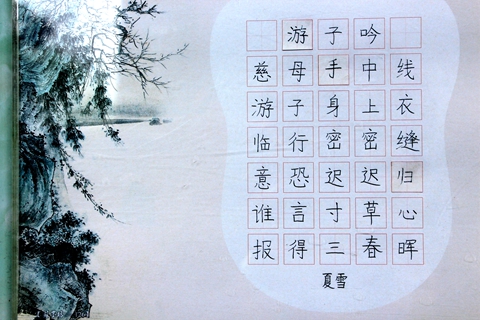 游子吟
慈母手中线
游子身上衣
临行密密缝
意恐迟迟归
谁言寸草心
报得三春晖
夏雪